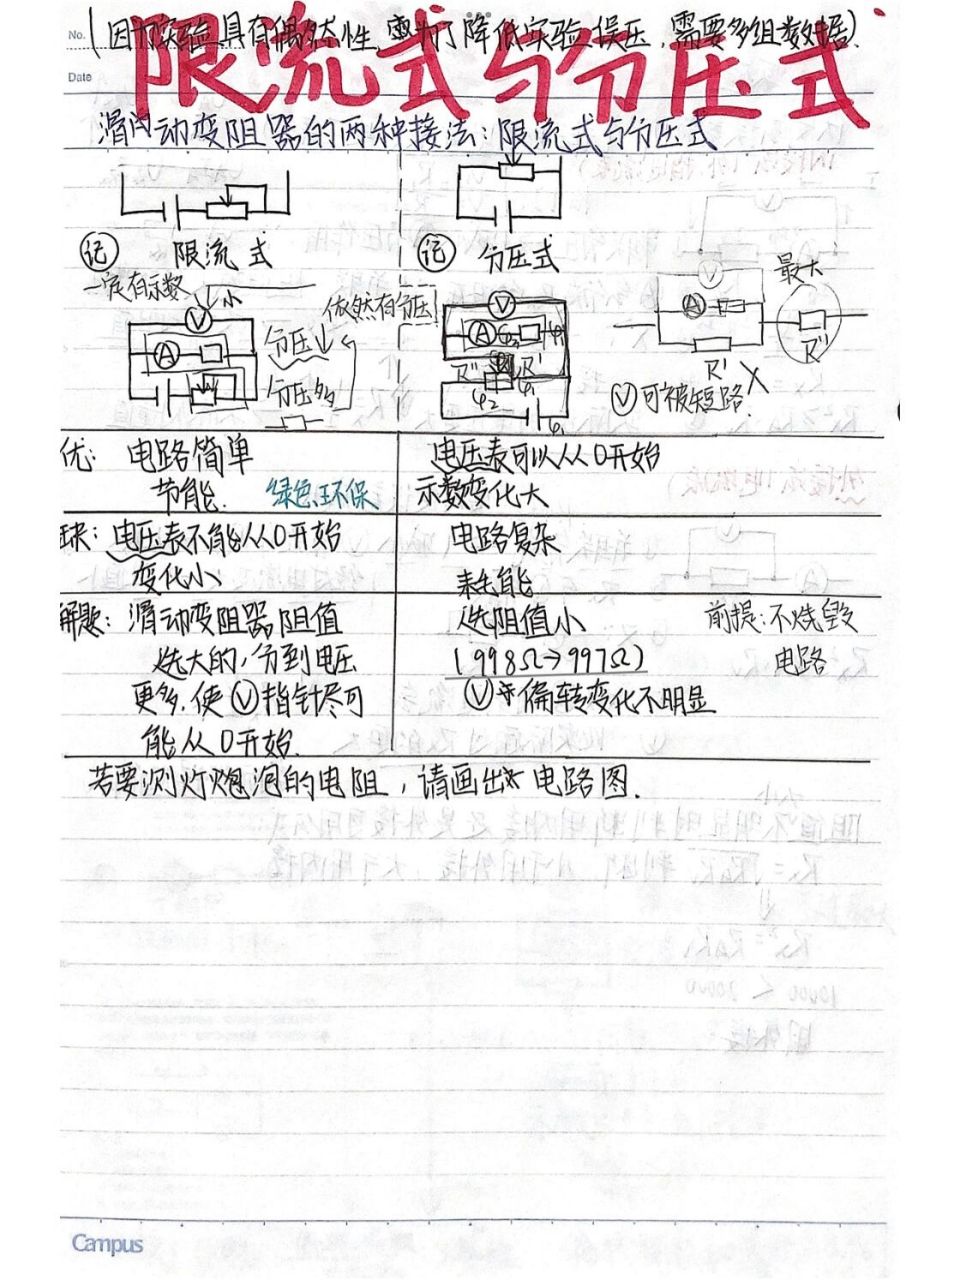 No.
(因为实验具有偶然性,为了降低实验误压,需要多组数据)
限流式与分压式
Date
滑动变阻器的两种接法:限流式与分压式
记 限流式
记 分压式
一定有示数
小
V
A
分压↓
分压多
依然有分压
V
A
R"
R'
φ₂
φ₁
最大
V
A
R'
R"
X
V可被短路
优: 电路简单
节能. 绿色环保
电压表可以从0开始
示数变化大
缺: 电压表不能从0开始
变化小
电路复杂
耗能
解题: 滑动变阻器阻值
选大的,分到电压
更多,使V指针尽可
能从0开始.
选阻值小
(998Ω→997Ω)
V偏转变化不明显
前提:不烧毁
电路
若要测灯炮泡的电阻,请画出电路图.
Campus